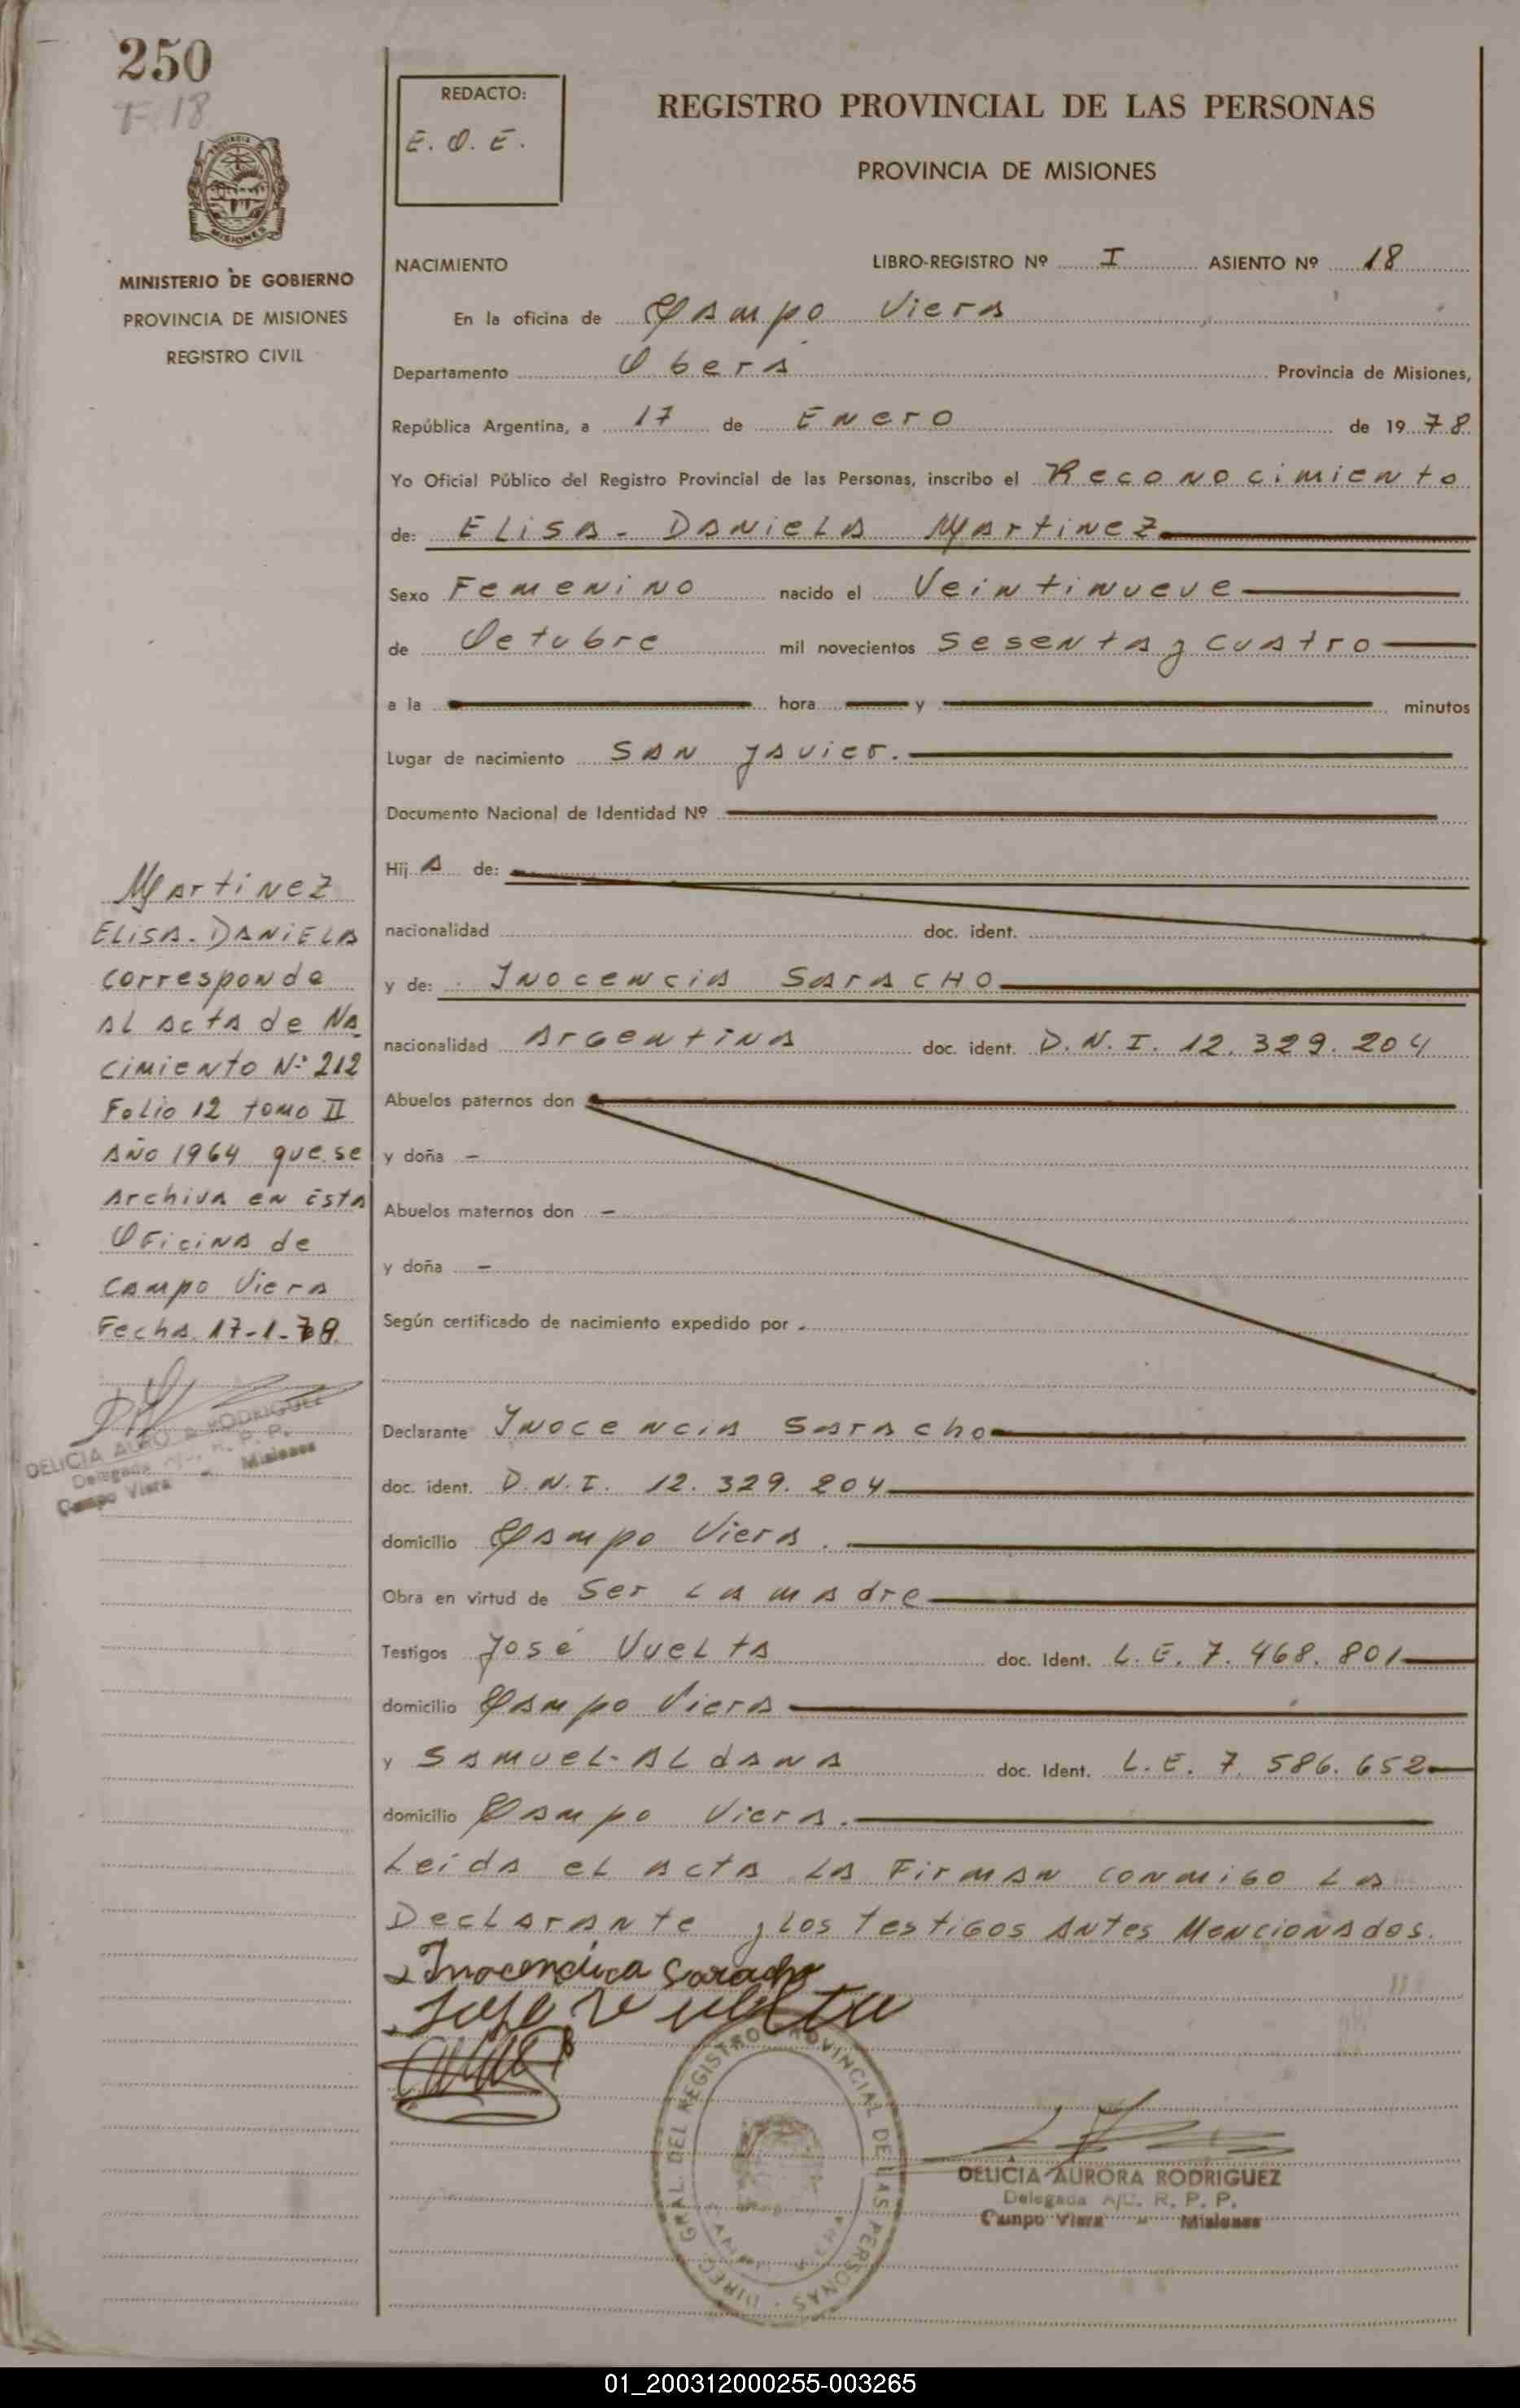 250
F 18
REDACTO:
E. O. E.
REGISTRO PROVINCIAL DE LAS PERSONAS
PROVINCIA DE MISIONES
MISIONES
MINISTERIO DE GOBIERNO
PROVINCIA DE MISIONES
REGISTRO CIVIL
NACIMIENTO LIBRO-REGISTRO Nº I ASIENTO Nº 18
En la oficina de Campo Viera
Departamento Obera Provincia de Misiones,
República Argentina, a 17 de Enero de 1978
Yo Oficial Público del Registro Provincial de las Personas, inscribo el Reconocimiento
de: Elisa - Daniela Martinez
Sexo Femenino nacido el Veintinueve
de Octubre mil novecientos sesenta y cuatro
a la hora y minutos
Lugar de nacimiento San Javier.
Documento Nacional de Identidad Nº
Hij a de:
nacionalidad doc. ident.
y de: Inocencia Saracho
nacionalidad Argentina doc. ident. D.N.I. 12.329.204
Abuelos paternos don
y doña -
Abuelos maternos don -
y doña -
Según certificado de nacimiento expedido por -
Declarante Inocencia Saracho
doc. ident. D.N.I. 12.329.204
domicilio Campo Viera.
Obra en virtud de Ser la madre
Testigos José Vuelta doc. Ident. L.E. 7.468.801
domicilio Campo Viera
y Samuel-Aldana doc. Ident. L.E. 7.586.652
domicilio Campo Viera.
Leida el acta la Firman conmigo la
Declarante y los testigos antes Mencionados.
Inocencia Saracho
Jose Vuelta
DIREC. GRAL. DEL REGISTRO PROVINCIAL DE LAS PERSONAS
DELICIA AURORA RODRIGUEZ
Delegada A/C. R. P. P.
Campo Viera - Misiones
Martinez
Elisa - Daniela
corresponde
al acta de Na
cimiento Nº 212
Folio 12 tomo II
Año 1964 que se
Archiva en ésta
Oficina de
Campo Viera
Fecha 17-1-78.
DELICIA AURORA RODRIGUEZ
Delegada A/C. R. P. P.
Campo Viera - Misiones
01_200312000255-003265